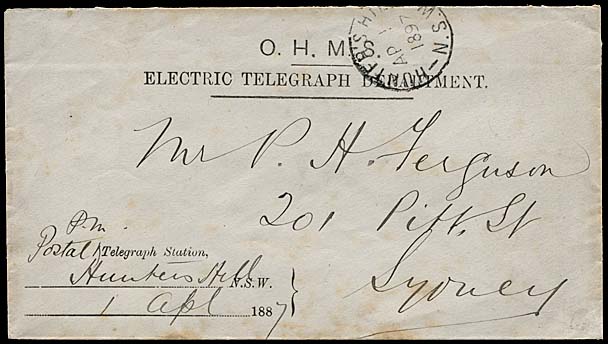 O. H. M. S.
N.S.W. HUNTERS HILL
AP 1
1897
ELECTRIC TELEGRAPH DEPARTMENT.
Mr P. H. Ferguson
201 Pitt. St
Sydney
P.M.
Postal Telegraph Station,
Hunters Hill N.S.W.
1 Apl 1887